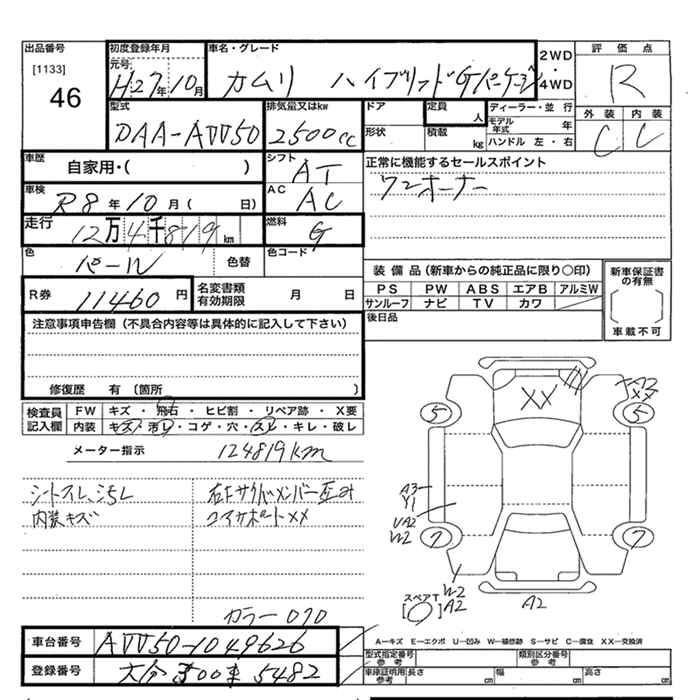 出品番号
[1133]
46
初度登録年月
元号
H27年10月
車名・グレード
カムリ ハイブリッドGパッケージ
2WD
・
4WD
評価点
R
型式
DAA-AVV50
排気量又はkw
2500cc
ドア
形状
定員
人
積載
kg
ディーラー・並行
モデル年式 年
ハンドル 左・右
外装
C
内装
C
車歴
自家用・( )
シフト
AT
正常に機能するセールスポイント
ワンオーナー
車検
R8年10月( 日)
AC
AC
走行
12万4千819km
燃料
G
色
パール
色替
色コード
装備品(新車からの純正品に限り○印)
PS PW ABS エアB アルミW
サンルーフ ナビ TV カワ
新車保証書の有無
[ ]
車載不可
R券
11460円
名変書類
有効期限
月 日
後日品
注意事項申告欄(不具合内容等は具体的に記入して下さい)
修復歴 有 〔箇所 〕
検査員記入欄
FW キズ・飛石・ヒビ割・リペア跡・X要
内装 キズ・汚レ・コゲ・穴・スレ・キレ・破レ
メーター指示 124819km
シートスレ、汚レ
内装キズ
右上サイドメンバー凹み
コアサポートXX
カラー 070
XX
XX
5
5
A3
Y1
UA2
W2
7
7
W2
A2
A2
スペアT
[○]
車台番号
AVV50-1049626
登録番号
大分 300 5482
A-キズ E-エクボ U-凹み W-補修跡 S-サビ C-腐食 XX-交換済
型式指定番号
参考
類別区分番号
参考
車庫証明用
参考
長さ cm
幅 cm
高さ cm